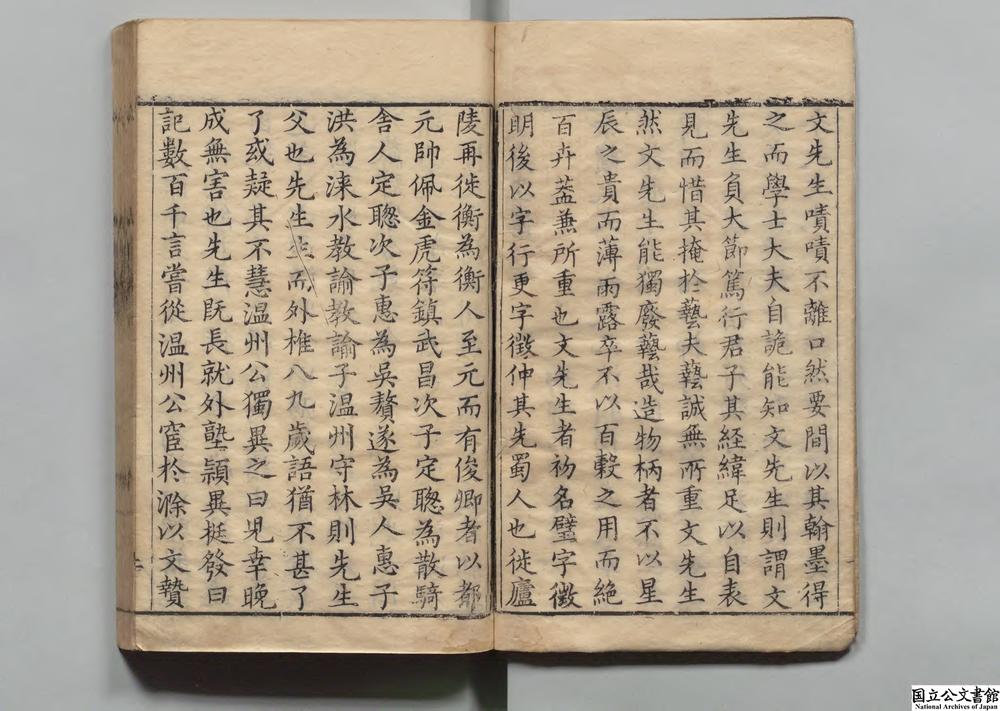 文先生嘖嘖不離口然要間以其翰墨得
之而學士大夫自詭能知文先生則謂文
先生負大節篤行君子其経緯足以自表
見而惜其掩扵藝夫藝誠無所重文先生
然文先生能獨廢藝哉造物柄者不以星
辰之貴而薄雨露卒不以百穀之用而絶
百卉葢兼所重也文先生者初名璧字徵
明後以字行更字徵仲其先蜀人也徙廬
陵再徙衡為衡人至元而有俊卿者以都
元帥佩金虎符鎮武昌次子定聰為散騎
舎人定聰次子惠為吳贅遂為吳人惠子
洪為淶水教諭教諭子温州守林則先生
父也先生生而外椎八九歲語猶不甚了
了或疑其不慧温州公獨異之曰兒幸晚
成無害也先生既長就外塾穎異挺發曰
記數百千言嘗從温州公宦扵滁以文贄
国立公文書館
National Archives of Japan